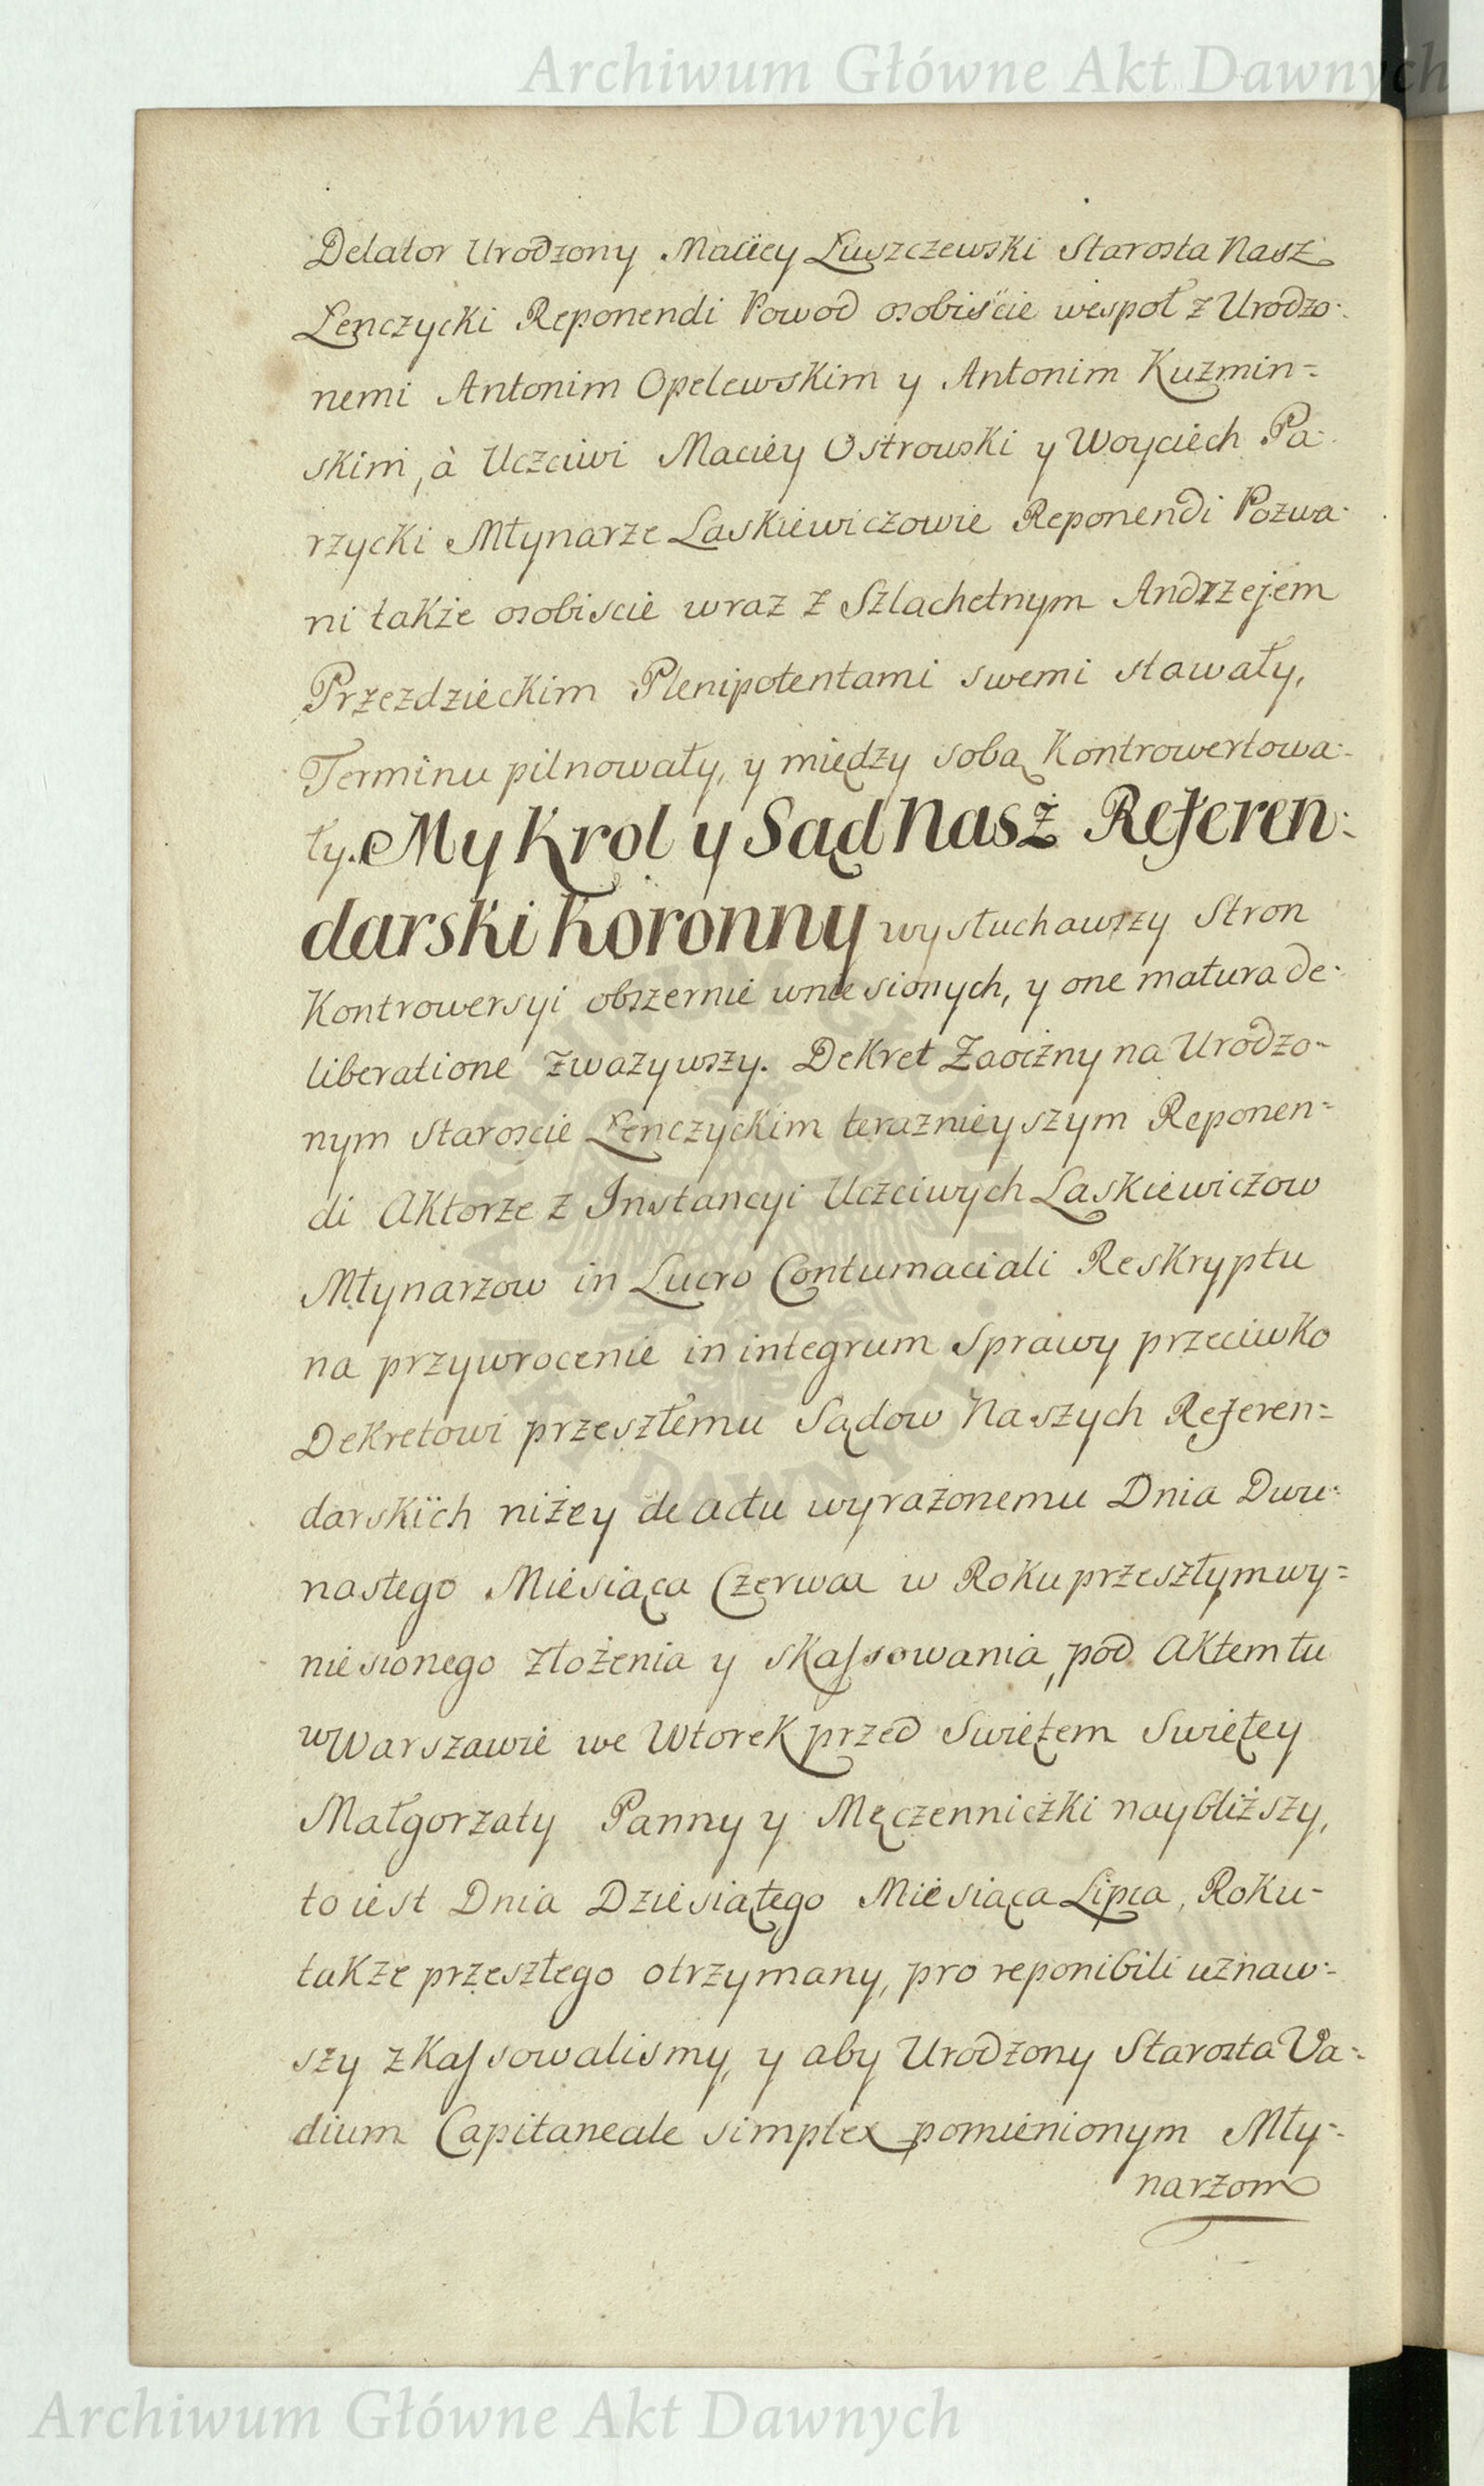 Archiwum Główne Akt Dawnych
Delator Urodzony Maciey Łuszczewski Starosta Nasz
Łenczycki Reponendi Powod osobiście wespoł z Urodzo-
nemi Antonim Opelewskim y Antonim Kuzmin=
skim, à Uczciwi Maciey Ostrowski y Woyciech Pa-
rzycki Młynarze Laskiewiczowie Reponendi Pozwa-
ni także osobiscie wraz z Szlachetnym Andrzejem
Przezdzieckim Plenipotentami swemi stawały,
Terminu pilnowały, y między sobą Kontrowertowa-
ły. My Krol y Sąd Nasz Referen-
darski Koronny wysłuchawszy Stron
Kontrowersyi obszernie wniesionych, y one matura de-
liberatione zważywszy. Dekret Zaoczny na Urodzo-
nym Staroscie Łenczyckim teraznieyszym Reponen=
di Aktorze z Instancyi Uczciwych Laskiewiczow
Młynarzow in Lucro Contumaciali Reskryptu
na przywrocenie in integrum Sprawy przeciwko
Dekretowi przeszłemu Sądow Naszych Referen=
darskich niżey de actu wyrażonemu Dnia Dwu-
nastego Miesiąca Czerwca w Roku przeszłym wy=
niesionego złożenia y skassowania, pod Aktem tu
w Warszawie we Wtorek przed Swiętem Swiętey
Małgorzaty Panny y Męczenniczki naybliższy,
to iest Dnia Dziesiątego Miesiąca Lipca, Roku-
także przeszłego otrzymany, pro reponibili uznaw-
szy zkassowalismy, y aby Urodzony Starosta Va-
dium Capitaneale simplex pomienionym Mły-
narzom
Archiwum Główne Akt Dawnych